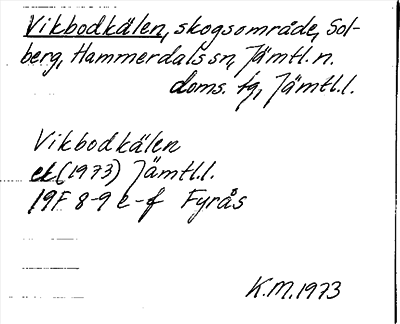 Vikbodkälen, skogsområde, Sol-
berg, Hammerdals sn, Jämtl. n.
doms. fg, Jämtl.l.
Vikbodkälen
ek (1973) Jämtl.l.
19F 8-9 e-f Fyrås
K.M. 1973